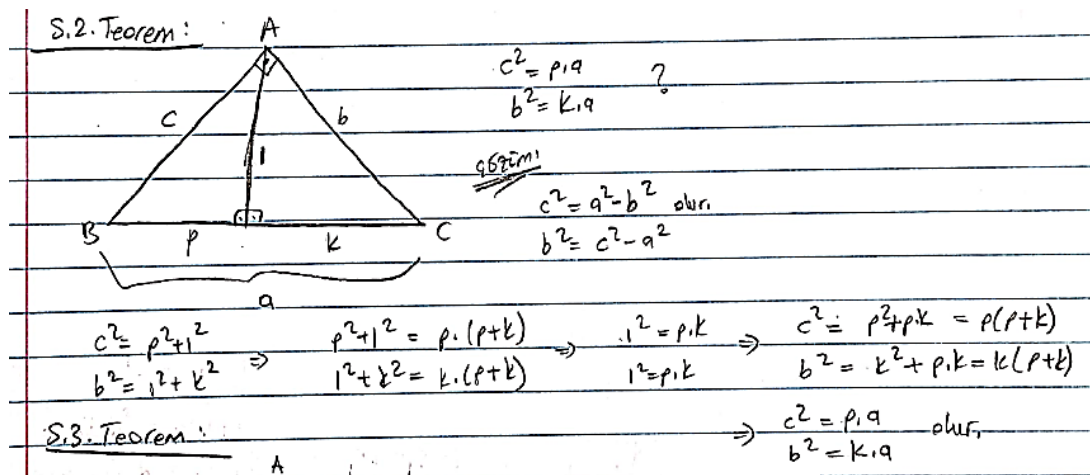 S.2. Teorem:
A
c² = p.a
b² = k.a
?
c
b
1
çözüm:
c² = a² - b² olur.
b² = c² - a²
B
p
k
C
a
c² = p² + 1²
b² = 1² + k²
⇒
p² + 1² = p.(p+k)
1² + k² = k.(p+k)
⇒
1² = p.k
1² = p.k
⇒
c² = p² + p.k = p(p+k)
b² = k² + p.k = k(p+k)
⇒
c² = p.a
b² = k.a
olur.
S.3. Teorem:
A